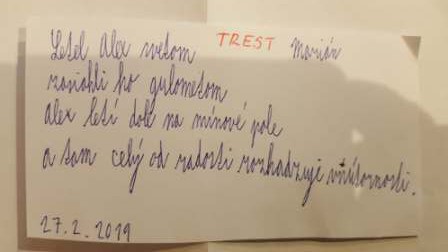 Letel Alex svetom TREST Marián
zasiahli ho gulometom
Alex letí dole na mínové pole
a tam celý od radosti rozhadzuje vnútornosti.
27.2.2019